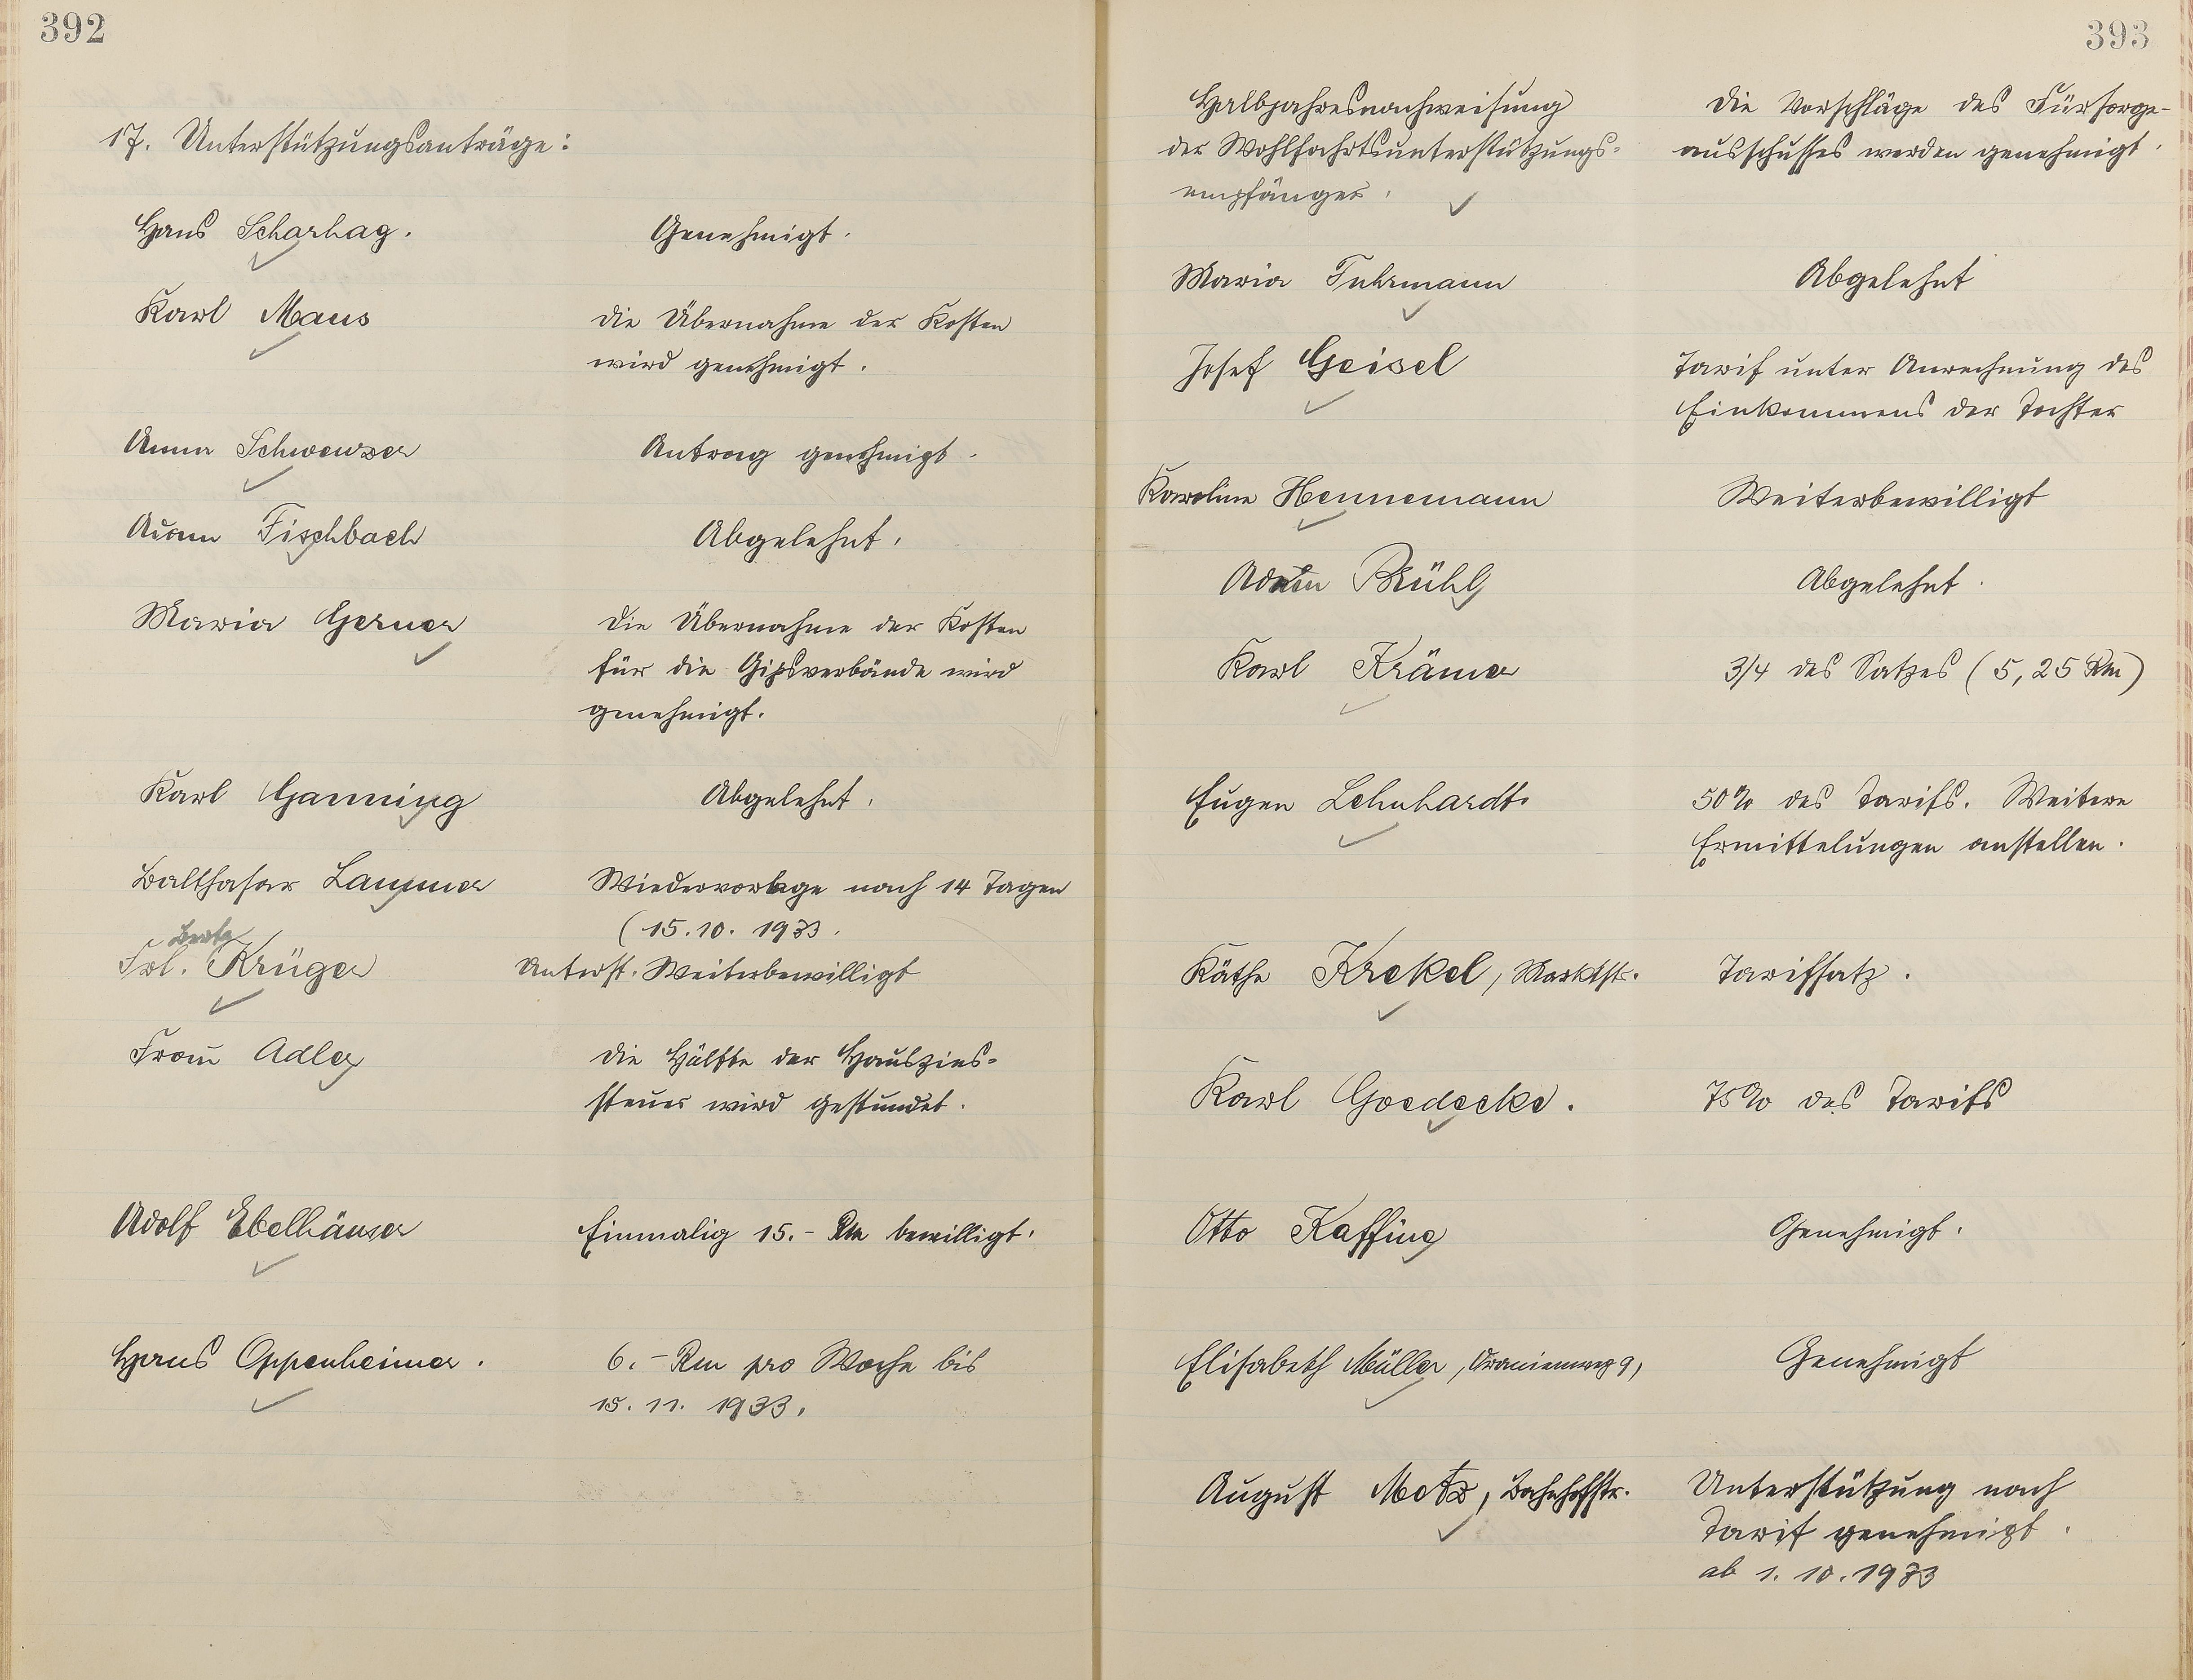 392
17. Unterstützungsanträge:
Hans Scharhag. Genehmigt.
Karl Maus Die Übernahme der Kosten
wird genehmigt.
Anna Schwenzer Antrag genehmigt.
Fischbach Abgelehnt.
Maria Gerner Die Übernahme der Kosten
für die Gipsverbände wird
genehmigt.
Karl Ganning Abgelehnt.
Balthasar Lammer Wiedervorlage nach 14 Tagen
(15.10.1933.
Frl. Krüger Unterst. Weiterbewilligt
Adler Die Hälfte der Hauszins-
steuer wird gestundet.
Adolf Ebelhäuser Einmalig 15.- Rm bewilligt.
Hans Oppenheimer. 6.- Rm pro Woche bis
15. 11. 1933.
393
Halbjahresnachweisung Die Vorschläge des Fürsorge-
der Wohlfahrtsunterstützungs- ausschusses werden genehmigt.
empfänger.
Maria Fuhrmann Abgelehnt
Josef Geisel Tarif unter Anrechnung des
Einkommens der Tochter
Karoline Hennemann Weiterbewilligt
Adam Brühl Abgelehnt.
Karl Krämer 3/4 des Satzes (5,25 Rm)
Eugen Lehnhardt. 50% des Tarifs. Weitere
Ermittelungen anstellen.
Käthe Krekel, Marktstr. Tarifsatz.
Karl Goedecke. 75% des Tarifs
Otto Kaffing Genehmigt.
Elisabeth Müller, Oranienweg 9, Genehmigt
August Metz, Bahnhofstr. Unterstützung nach
Tarif genehmigt.
ab 1. 10. 1933